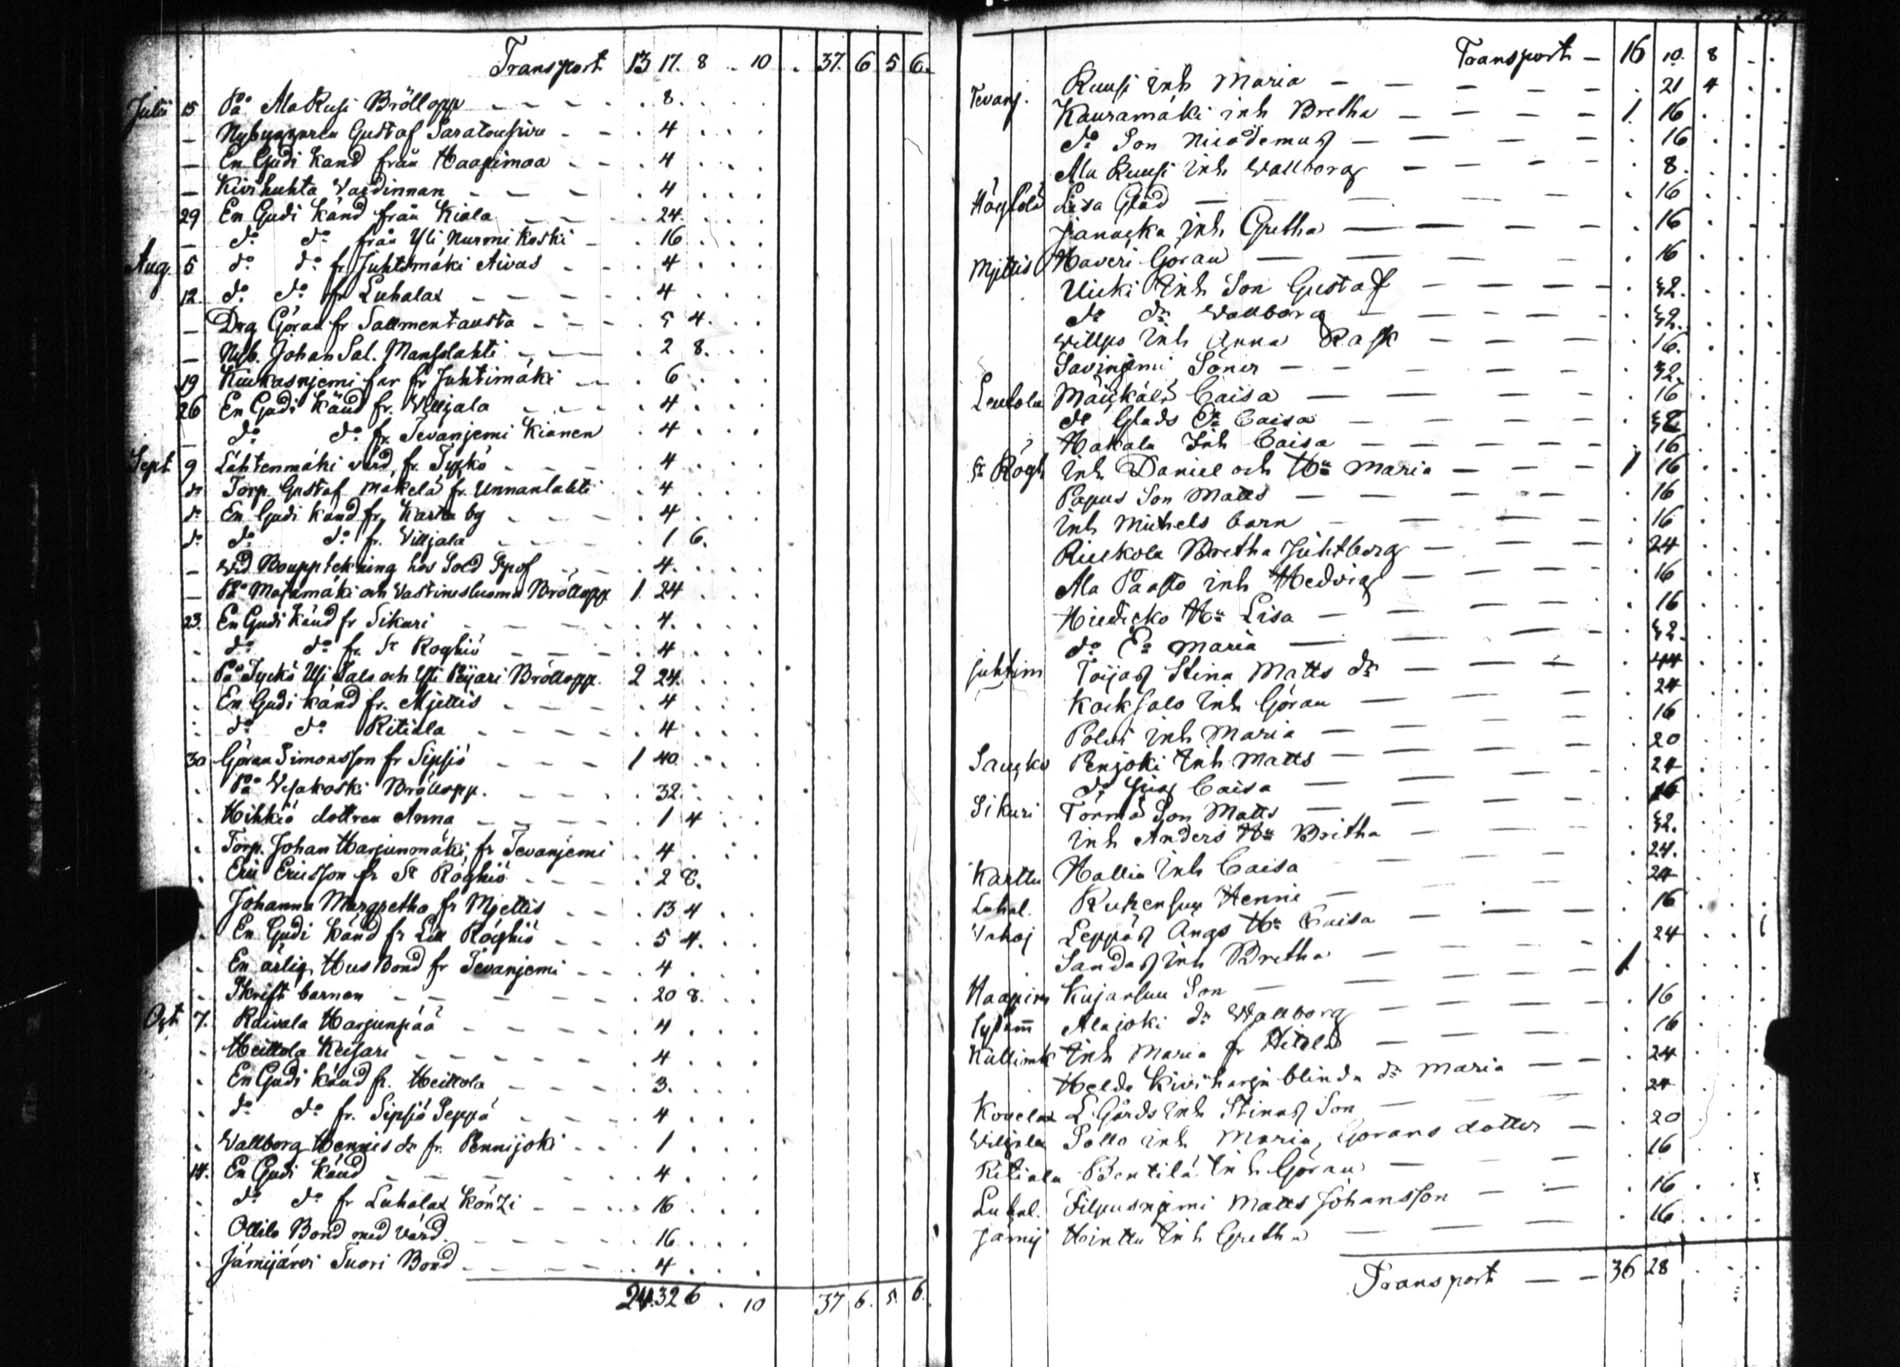 Transport 13 17. 8 . 10 . 37. 6 5 6.
Julii 15 På Ala Rusi Bröllopp 8.
Nybyggaren Gustaf 4
En Gudi känd från Haapimaa 4
Kivihuhta Värdinnan 4
29 En Gudi känd från Kiala 24.
do do från Yli Nurmikoski 16
Aug. 5 do do fr Juhtimäki Aivas 4
12 do do fr Luhalax 4
Drg Göran fr Sallmentausta 5 4.
Nyb. Johan Sal. Mansolahti 2 8.
19 Kiukasnjemi far fr Juhtimäki 6
26 En Gudi känd fr. Villjala 4
do do fr Tevanjemi Kianen 4
Sept 9 Lähtenmäki värd fr. Tyckö 4
do Torp. Gustaf Mäkelä fr. Unnanlahti 4
do En Gudi känd fr. Karttu by 4
do do do fr. Villjala 1 6.
vid Bouppteckning hos Sold 4.
På Majamäki och Vastinesluoma Bröllopp 1 24
23. En Gudi känd fr Sikuri 4.
do do fr. St Roghiö 4
På Tyckö Usi Salo och Yli Röyari Bröllopp. 2 24.
En Gudi känd fr. Mjettis 4
do do Ritiala 4
30 Göran Simonsson fr Sipsjö 1 40
På Vesakoski Bröllopp. 32.
Hihkiö dottren Anna 1 4
Torp. Johan Harjunmäki fr Tevanjemi 4
Eric Ericsson fr St Röghiö 2 8.
Johanna Margretha fr Mjettis 13 4
En Gudi känd fr Lill Röghiö 5 4.
En ärlig Hus Bond fr Tevanjemi 4
Skrift barnen 20 8.
Oct 7. Raivala Harjunpää 4
Heittola Keisari 4
En Gudi känd fr. Heittola 3.
do do fr. Sipsjö Seppä 4
Vallborg Hennis dr fr. Pennijoki 1
14. En Gudi känd 4
do do fr Luhalax Könzi 16
Ollila Bond med Värd. 16
Jämijärvi Tuori Bond 4
24 32 6 . 10 37 6. 5. 6.
Transport 16 10. 8
Tevanj. Ruusi inh Maria 21 4
Kauramäki inh Bretha 1 16
do Son Nicodemus 16
Ala Ruusi inh Wallborg 8.
Lisa Glad 16
inh Gretha 16
Mjettis Haveri Göran 16
Uicki Inh Son Gustaf 32.
do dr Wallborg 32.
Willpo inh Anna Rask 16.
Savinjemi Söner 32.
Leutola Caisa 16
do Glads Ea Caisa 32
Hakala Inh Caisa 16
St Rögh inh Daniel och Hu Maria 1 16
Papus Son Matts 16
inh Michels barn 16
Riuskola Bretha Juhtberg 24
Ala Paasto inh Hedvig 16
Hiedicko Hu Lisa 16
do Ea Maria 32.
Juhtim Toijas Stina Matts dr 44
Kocksalo Inh Göran 24
Polvi inh Maria 16
Saucko Penjoki Inh Matts 20
do Caisa 24
Sikuri Törmä Son Matts 16
inh Anders Hu Britha 32.
Karttu Hallia inh Caisa 24.
Luhal. Henni 24
Vahoj Leppäs Ängs Hu Caisa 16
Sandas inh Bretha 24
Haapim Kujansuu Son 1
Alajoki dr Wallborg 16
Kallimk Inh Maria fr Hitola 16
Heldo Kiviharju blinda dr Maria 24
Kovelax L. Gårds inh Stinas Son 24
Viljala Pollo inh Maria, Görans dotter 20
Ritiala Pentilä Inh Göran 16
Luhal. Filpusnjemi Matts Johansson 16
Jämij Hinttu Inh Gretha 16
Transport 36 28